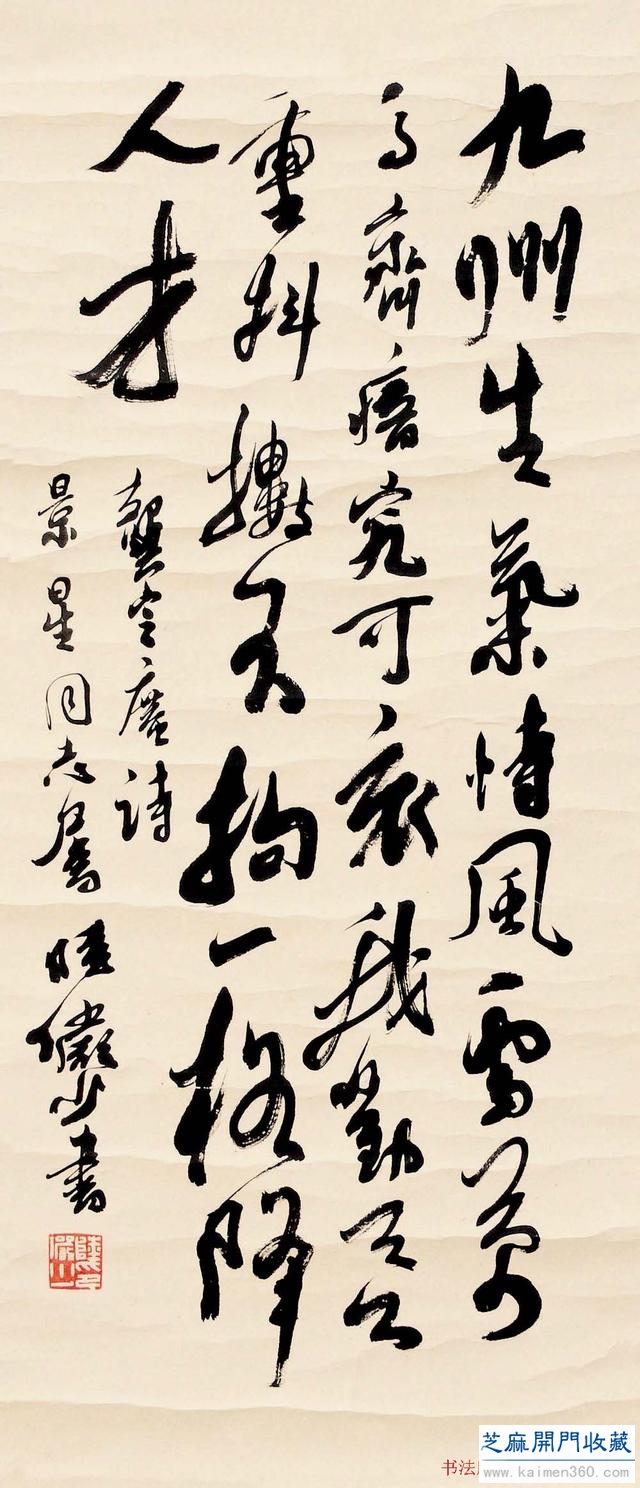 九州生氣恃風雷萬
馬齊瘖究可哀我勸天公
重抖擻不拘一格降
人才
龔定庵詩
景星同志屬 陸儼少書
芝麻開門收藏
书法
www.kaimen360.com